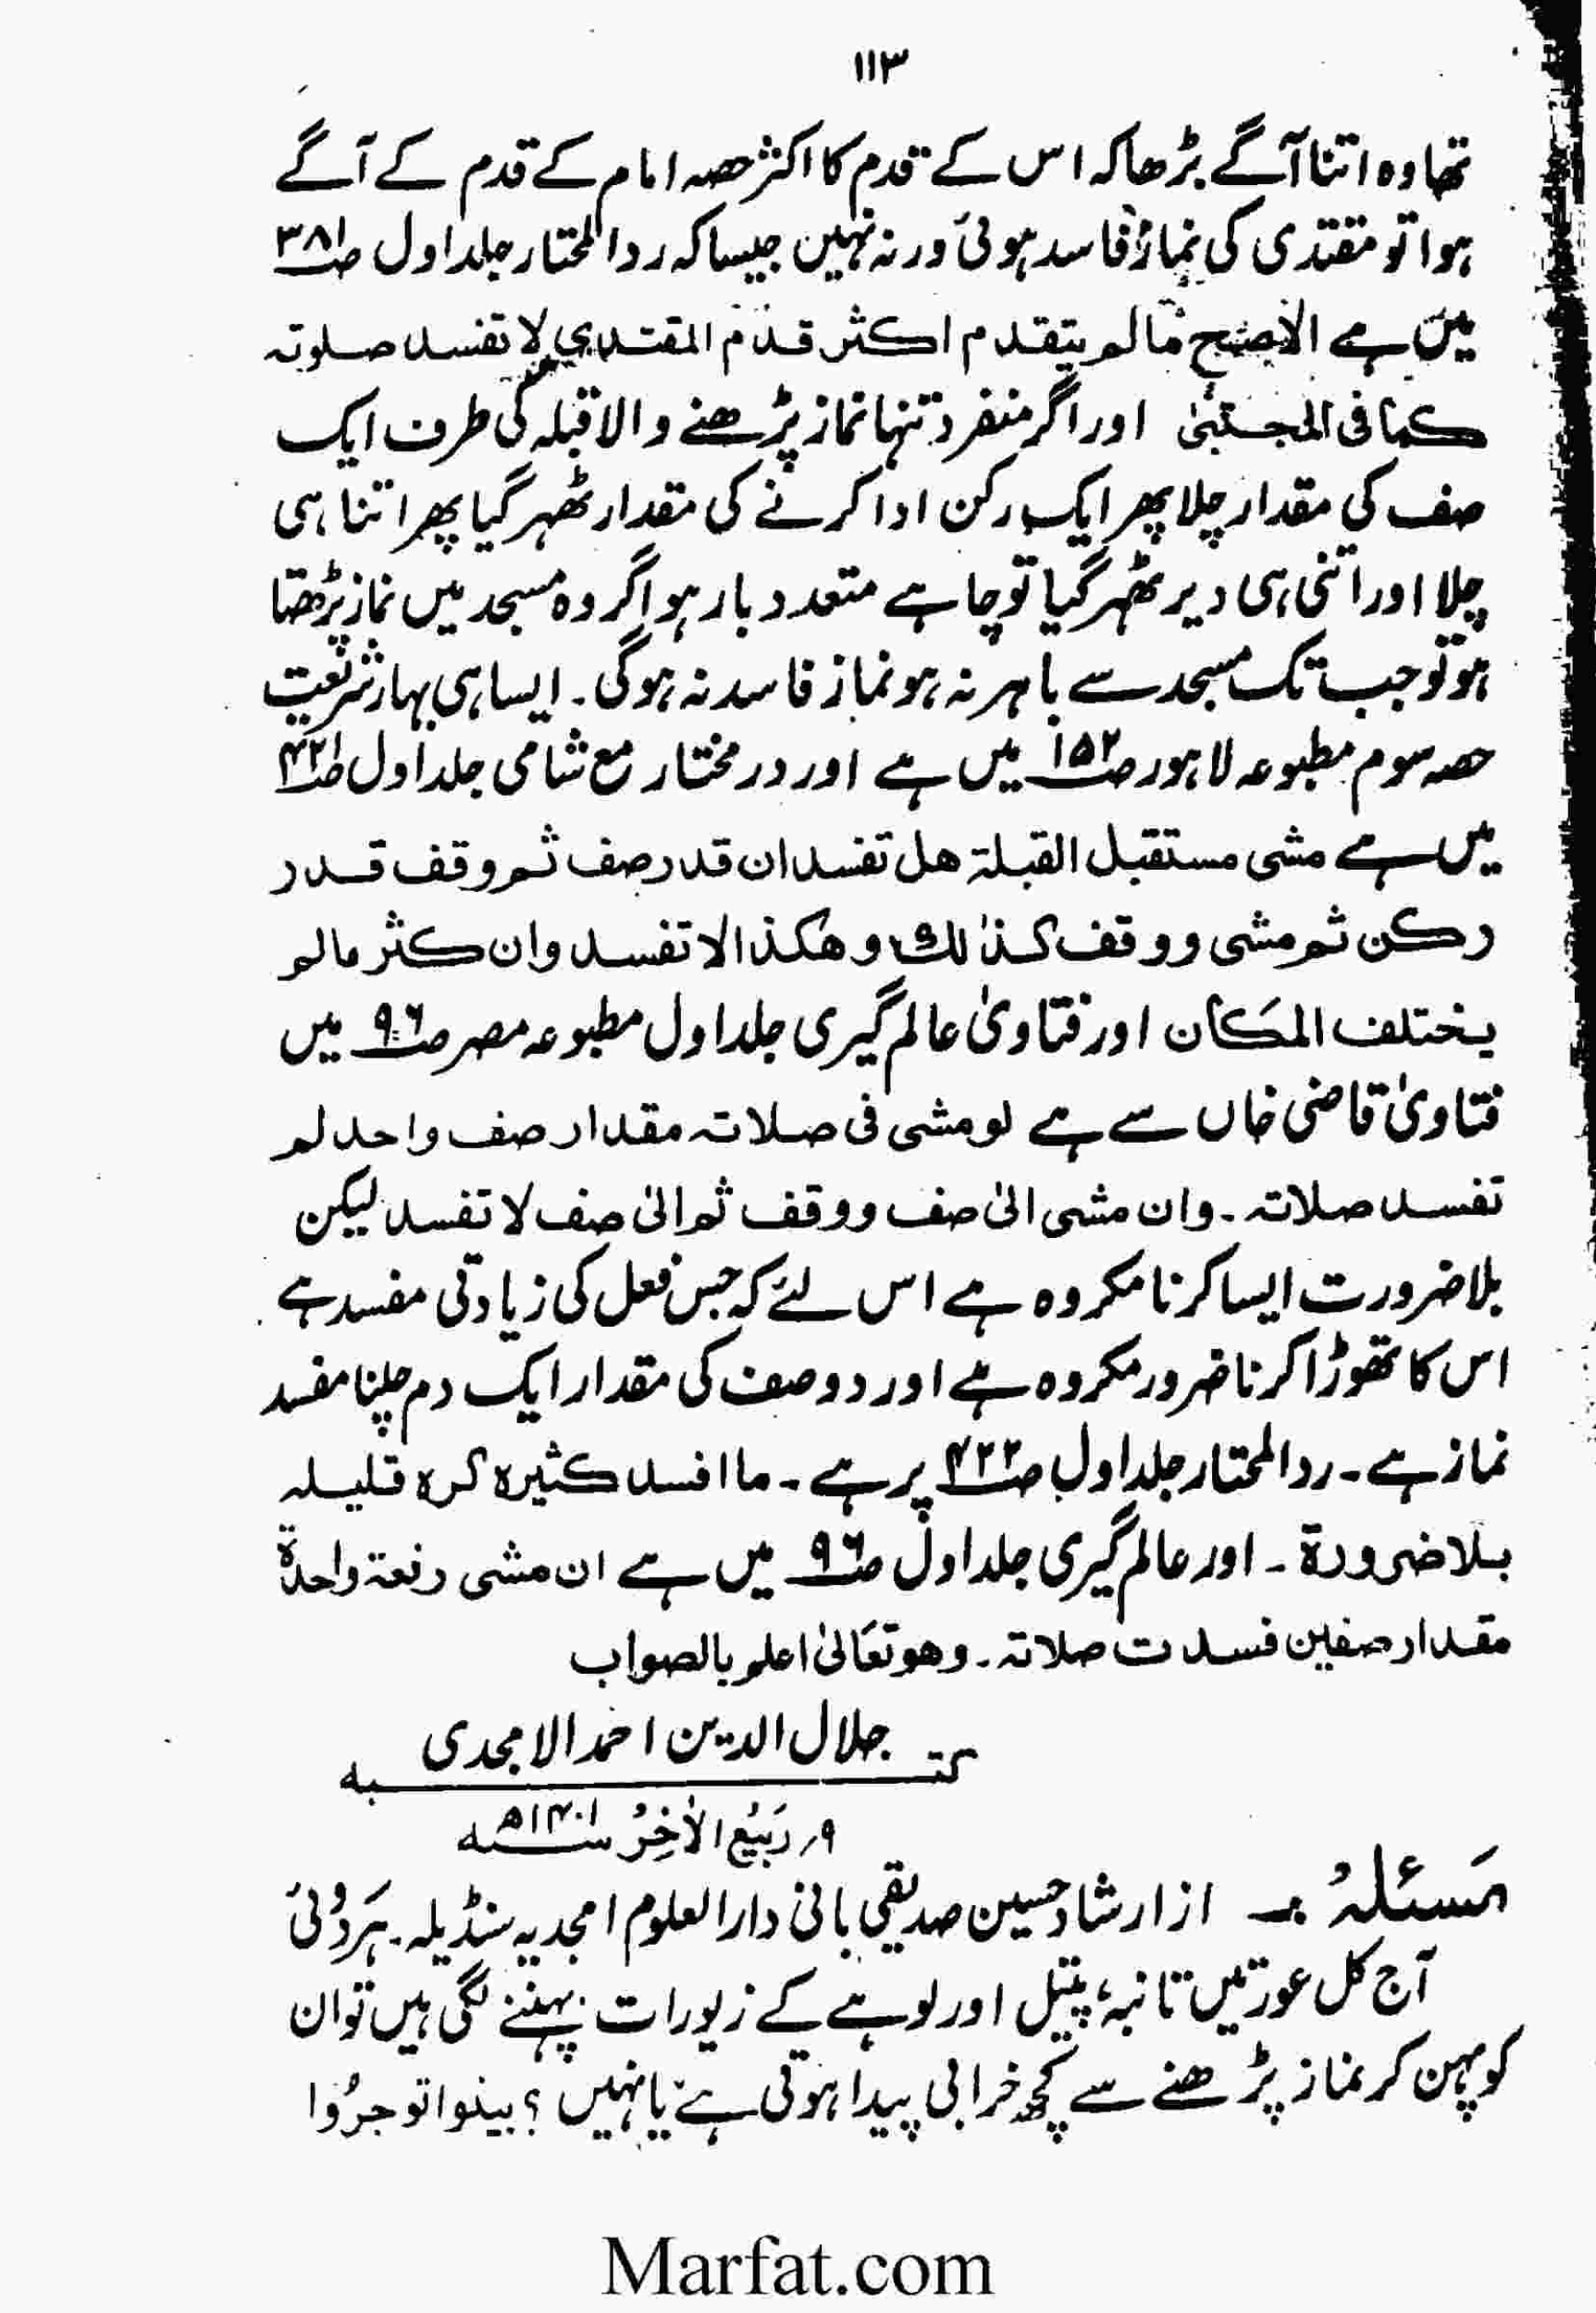 ۱۱۳
تھا وہ اتنا آگے بڑھا کہ اس کے قدم کا اکثر حصہ امام کے قدم کے آگے
ہوا تو مقتدی کی نماز فاسد ہوئی ورنہ نہیں جیسا کہ ردالمحتار جلد اول ص۳۸۱
میں ہے الاصح مالم يتقدم اكثر قدم المقتدي لا تفسد صلوته
كما فى المجتبىٰ اور اگر منفرد تنہا نماز پڑھنے والا قبلہ کی طرف ایک
صف کی مقدار چلا پھر ایک رکن ادا کرنے کی مقدار ٹھہر گیا پھر اتنا ہی
چلا اور اتنی ہی دیر ٹھہر گیا تو چاہے متعدد بار ہو اگر وہ مسجد میں نماز پڑھتا
ہو تو جب تک مسجد سے باہر نہ ہو نماز فاسد نہ ہوگی۔ ایسا ہی بہار شریعت
حصہ سوم مطبوعہ لاہور ص۱۵۲ میں ہے اور درمختار مع شامی جلد اول ص۴۲۱
میں ہے مشى مستقبل القبلة هل تفسد ان قدر صف ثم وقف قدر
ركن ثم مشى ووقف كذٰلك وهكذا لا تفسد وان كثر مالم
يختلف المكان اور فتاویٰ عالم گیری جلد اول مطبوعہ مصر ص۹۶ میں
فتاویٰ قاضی خاں سے ہے لو مشى فى صلاته مقدار صف واحد لم
تفسد صلاته۔ وان مشى الىٰ صف ووقف ثم الىٰ صف لا تفسد لیکن
بلا ضرورت ایسا کرنا مکروہ ہے اس لئے کہ جس فعل کی زیادتی مفسد ہے
اس کا تھوڑا کرنا ضرور مکروہ ہے اور دو صف کی مقدار ایک دم چلنا مفسد
نماز ہے۔ ردالمحتار جلد اول ص۴۲۲ پر ہے۔ ما افسد كثيره كره قليله
بلا ضرورة۔ اور عالم گیری جلد اول ص۹۶ میں ہے ان مشى دفعة واحدة
مقدار صفين فسدت صلاته۔ وهو تعالىٰ اعلم بالصواب
کتبہ جلال الدین احمد الامجدی
۹؍ رَبِیعُ الاٰخِرُ سنہ ۱۴۰۱ھ
مَسئلہُ :۔ از ارشاد حسین صدیقی بانی دارالعلوم امجدیہ سنڈیلہ۔ ہَردُوئی
آج کل عورتیں تانبہ، پیتل اور لوہے کے زیورات پہننے لگی ہیں تو ان
کو پہن کر نماز پڑھنے سے کچھ خرابی پیدا ہوتی ہے یا نہیں؟ بینوا توجرُوا
Marfat.com